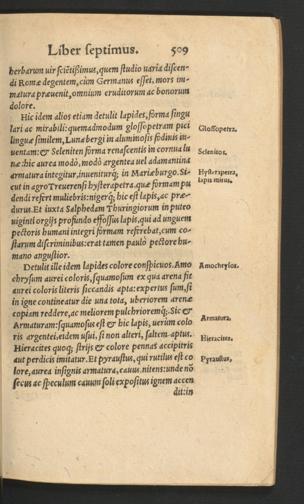 Liber septimus. 509
herbarum uir sciẽtißimus, quem studio uaria discen-
di Romæ degentem, cùm Germanus esset, mors im-
matura præuenit, omnium eruditorum ac bonorum
dolore.
Hic idem alios etiam detulit lapides, forma singu
lari ac mirabili: quemadmodum glossopetram pici
Glossopetra.
linguæ similem, Lunæbergi in aluminosis fodinis in-
uentam: & Seleniten forma renascentis in cornua lu
Selenites.
næ: hic aurea modò, modò argentea uel adamantina
armatura integitur, inueniturq́; in Mariæburgo. Si-
Hysterapetra,
cut in agro Treuerensi hysterapetra. quæ formam pu
lapis niger.
dendi refert muliebris: nigerq́; hic est lapis, ac præ-
durus. Et iuxta Salphedam Thuringiorum in puteo
uiginti orgijs profundo effossus lapis, qui ad unguem
pectoris humani integri formam referebat, cum co-
starum discriminibus: erat tamen paulò pectore hu-
mano angustior.
Detulit ille idem lapides colore conspicuos. Amo
Amochrysos.
chrysum aurei coloris, squamosum ex qua arena fit
aurei coloris literis siccandis apta: expertus sum, si
in igne contineatur die una tota, uberiorem arenæ
copiam reddere, ac meliorem pulchrioremq́;. Sic &
Armatura.
Armaturam: squamosus est & hic lapis, uerùm colo
ris argentei. eidem usui, si non alteri, saltem aptus.
Hieracites quoq; strijs & colore pennas accipitris
Hieracites.
aut perdicis imitatur. Et pyraustus, qui rutilus est co
Pyraustus.
lore, aurea insignis armatura, cauus. nitens: unde nõ
secus ac speculum cauum soli expositus ignem accen
dit: in